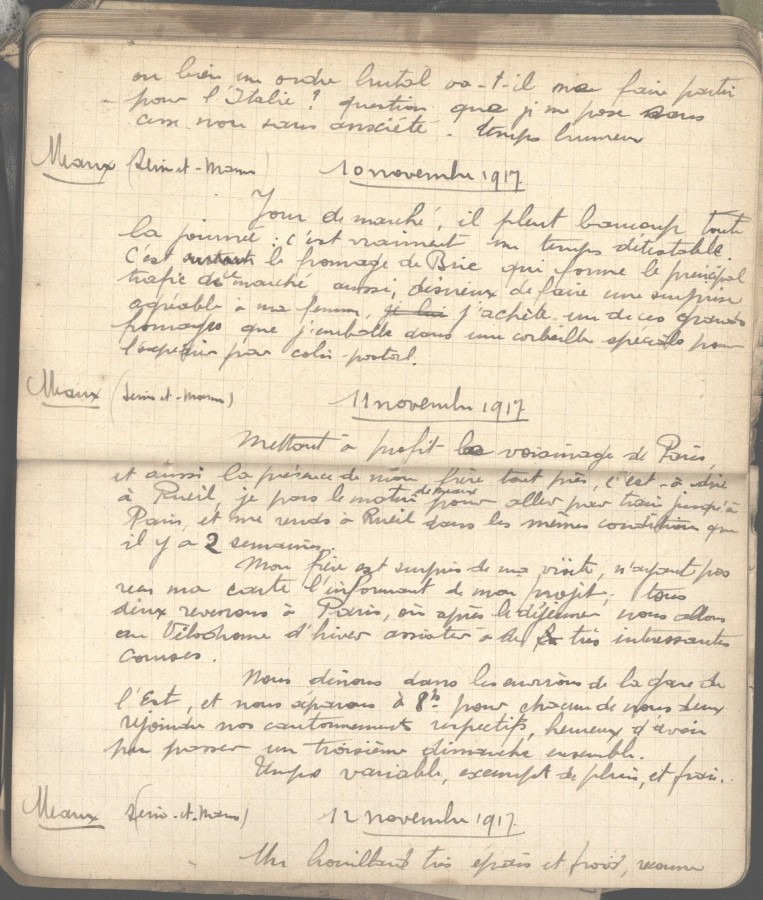 ou bien un ordre brutal va-t-il me faire partir
pour l'Italie ? question que je me pose sans
cesse non sans anxiété. temps brumeux
Meaux (Seine-et-Marne) 10 novembre 1917
Jour de marché, il pleut beaucoup toute
la journée : c'est vraiment un temps détestable.
C'est surtout le fromage de Brie qui forme le principal
trafic de ce marché, aussi, désireux de faire une surprise
agréable à ma femme, je lui j'achète un de ces grands
fromages que j'emballe dans une corbeille spéciale pour
l'expédier par colis-postal.
Meaux (Seine-et-Marne) 11 novembre 1917
Mettant à profit le voisinage de Paris,
et aussi la présence de mon frère tout près, c'est-à-dire
à Rueil, je pars le matin de Meaux pour aller par train jusqu'à
Paris, et me rends à Rueil dans les mêmes conditions que
il y a 2 semaines.
Mon frère est surpris de ma visite, n'ayant pas
reçu ma carte l'informant de mon projet ; tous
deux revenons à Paris, où après le déjeuner nous allons
au Vélodrome d'hiver assister à de très intéressantes
courses.
Nous dînons dans les environs de la gare de
l'Est, et nous séparons à 8h pour chacun de nous deux
rejoindre nos cantonnements respectifs, heureux d'avoir
pu passer un troisième dimanche ensemble.
Temps variable, exempt de pluie, et frais.
Meaux (Seine-et-Marne) 12 novembre 1917
Un brouillard très épais et froid,